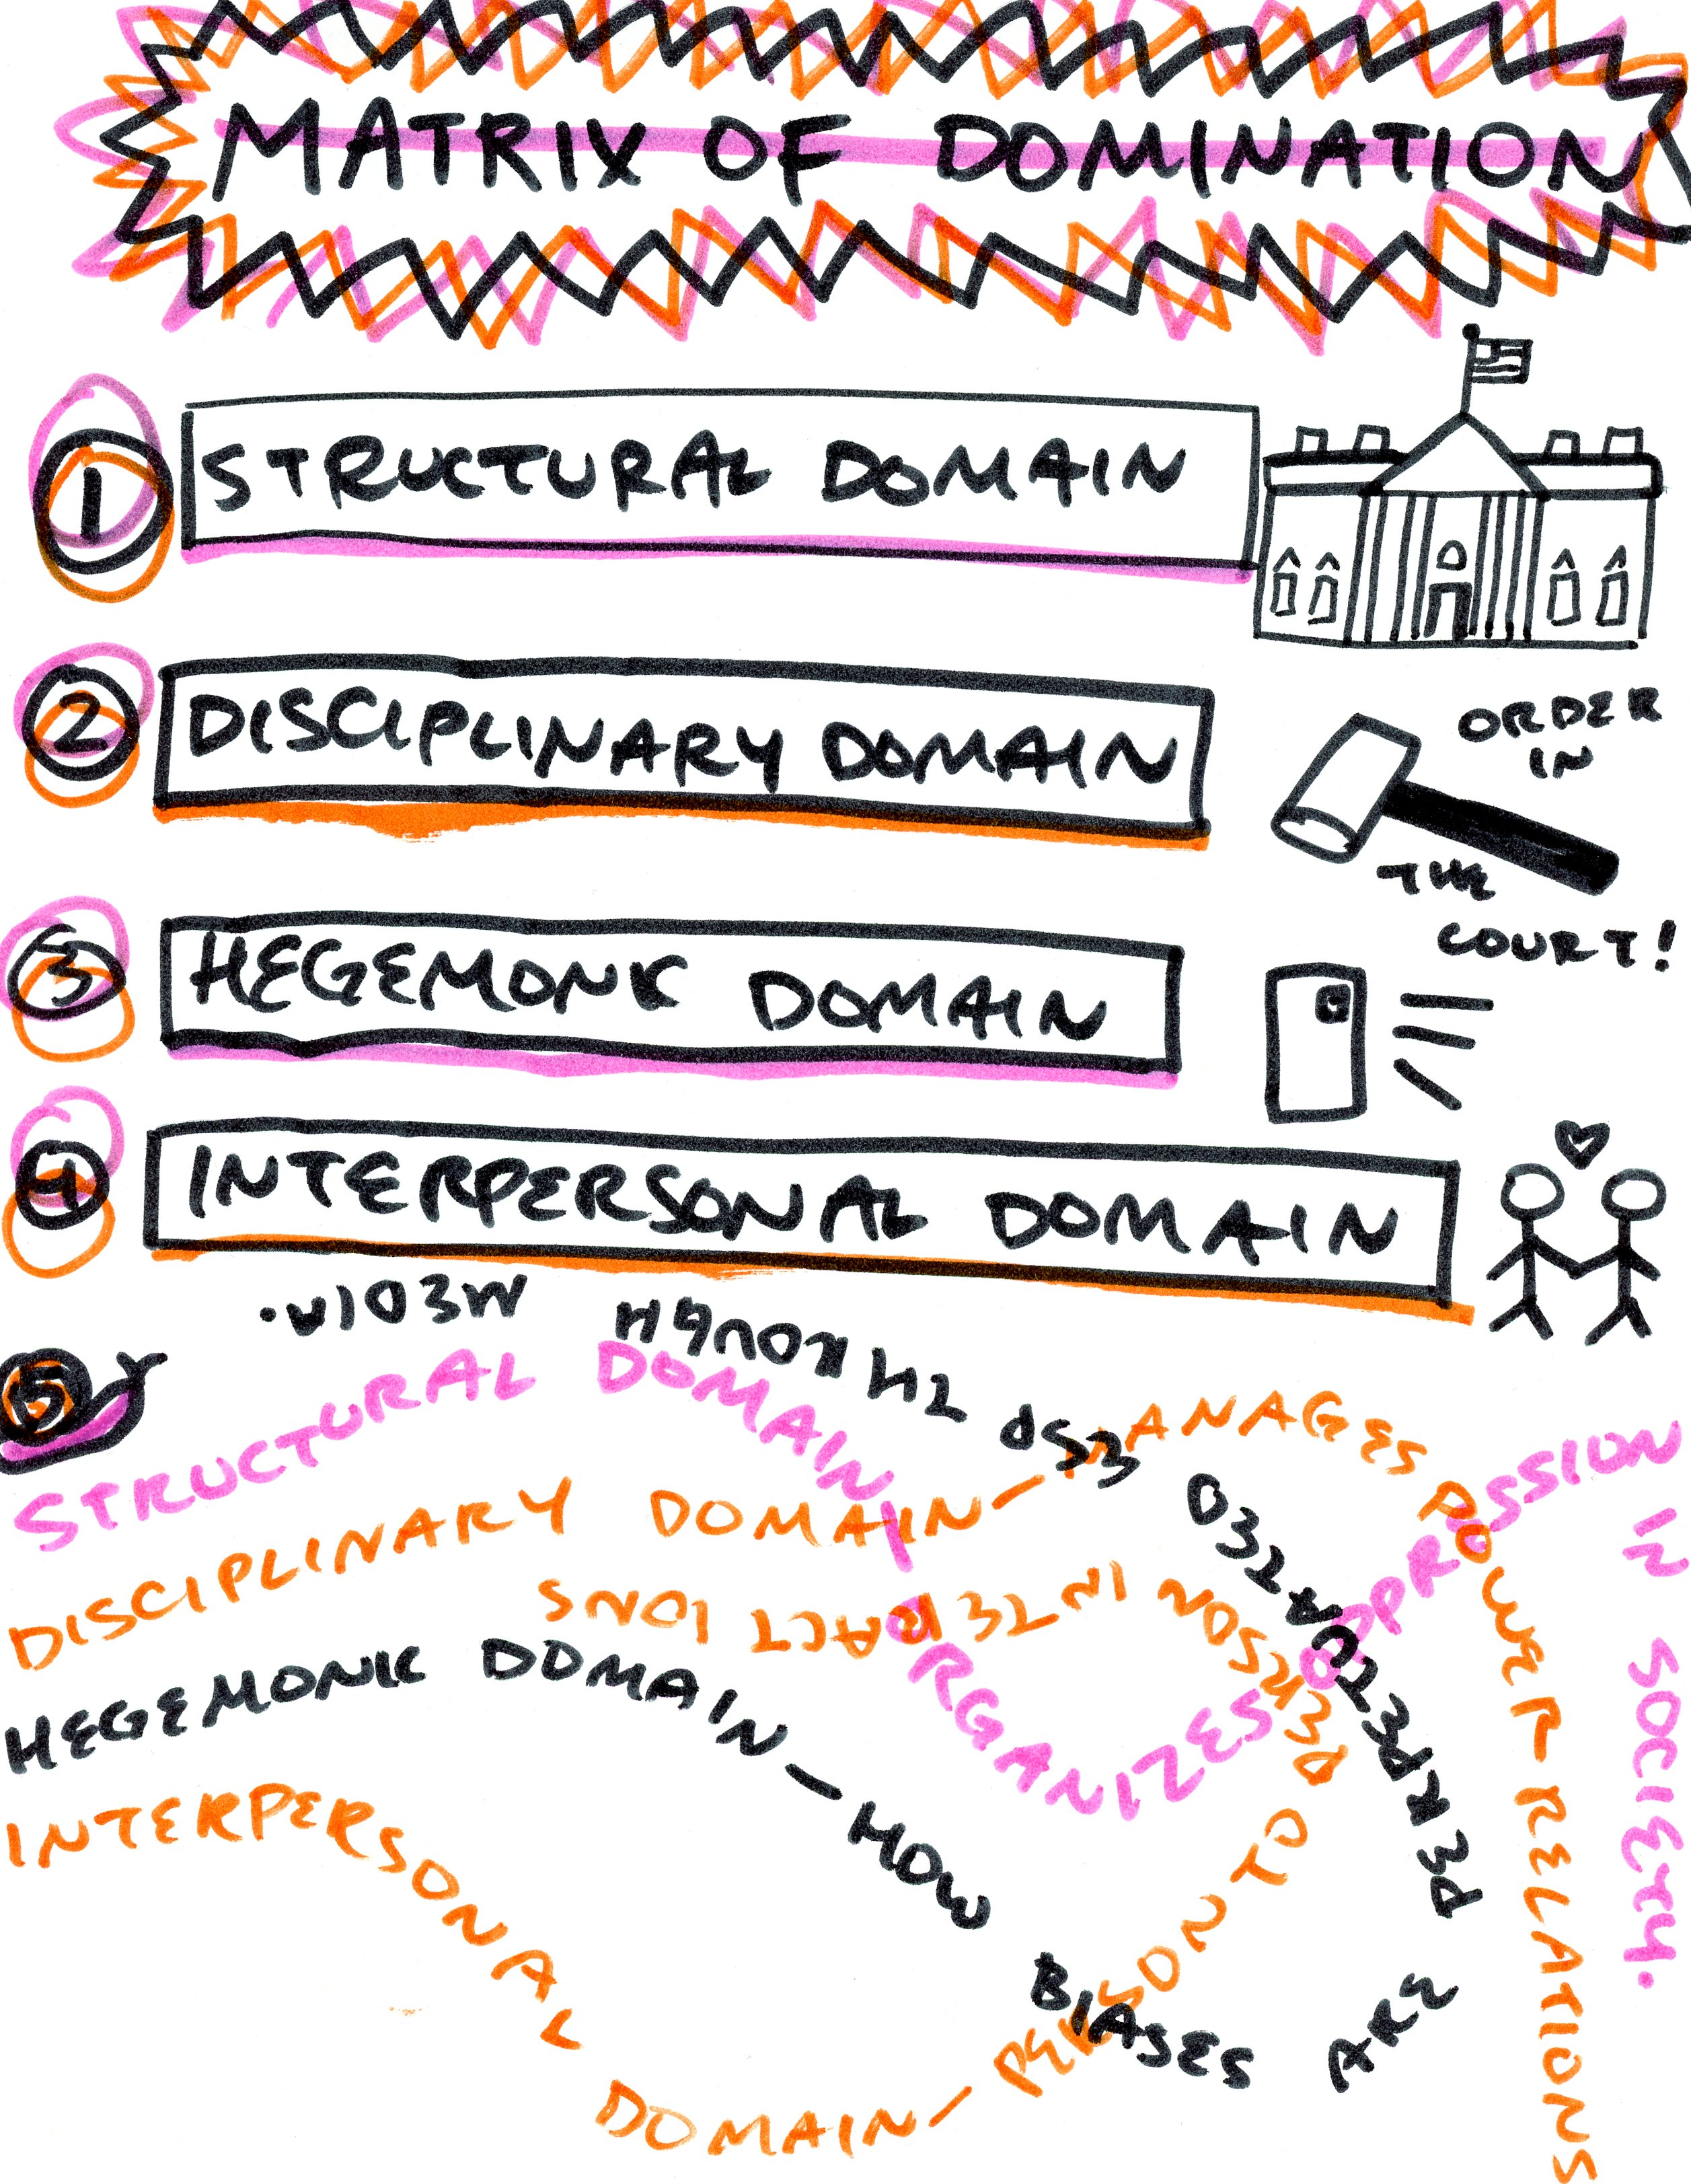 MATRIX OF DOMINATION
1 STRUCTURAL DOMAIN
2 DISCIPLINARY DOMAIN
ORDER
IN
THE
COURT!
3 HEGEMONIC DOMAIN
4 INTERPERSONAL DOMAIN
5
STRUCTURAL DOMAIN - ORGANIZES OPPRESSION IN SOCIETY.
DISCIPLINARY DOMAIN - MANAGES POWER RELATIONS
HEGEMONIC DOMAIN - HOW BIASES ARE THROUGH MEDIA.
INTERPERSONAL DOMAIN - PERSON TO PERSON INTERACTIONS